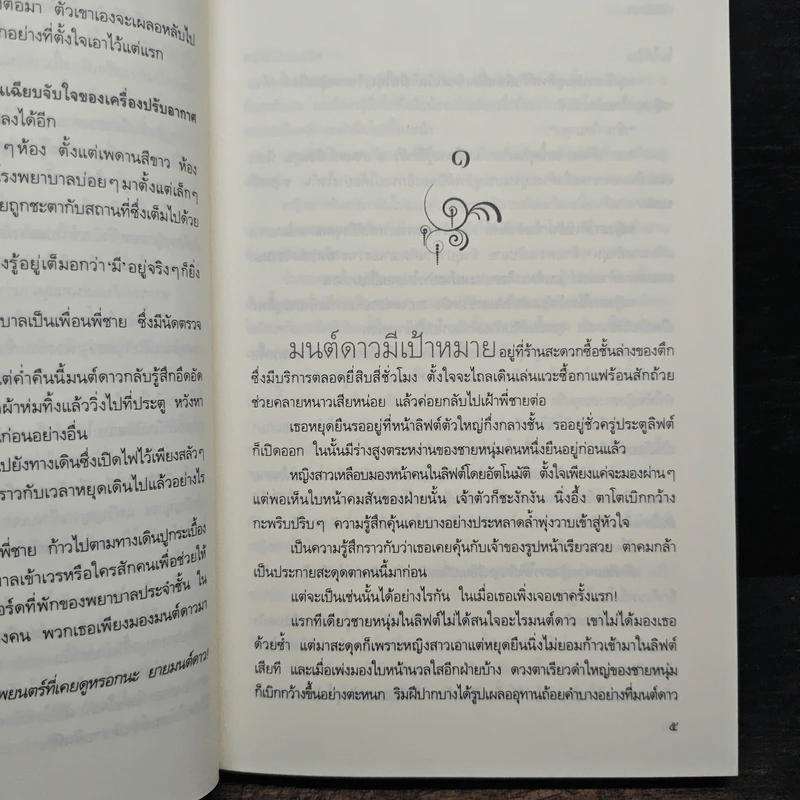 งต่อมา ตัวเขาเองจะเผลอหลับไป
กอย่างที่ตั้งใจเอาไว้แต่แรก
นเฉียบจับใจของเครื่องปรับอากาศ
ลงได้อีก
ๆ ห้อง ตั้งแต่เพดานสีขาว ห้อง
โรงพยาบาลบ่อยๆ มาตั้งแต่เล็กๆ
ยถูกชะตากับสถานที่ซึ่งเต็มไปด้วย
งรู้อยู่เต็มอกว่า 'มี' อยู่จริงๆ ก็ยิ่ง
บาลเป็นเพื่อนพี่ชาย ซึ่งมีนัดตรวจ
แต่ค่ำคืนนี้มนต์ดาวกลับรู้สึกอึดอัด
ผ้าห่มทิ้งแล้ววิ่งไปที่ประตู หวังหา
ก่อนอย่างอื่น
ปยังทางเดินซึ่งเปิดไฟไว้เพียงสลัวๆ
ราวกับเวลาหยุดเดินไปแล้วอย่างไร
พี่ชาย ก้าวไปตามทางเดินปูกระเบื้อง
าลเข้าเวรหรือใครสักคนเพื่อช่วยให้
อร์ดที่พักของพยาบาลประจำชั้น ใน
งคน พวกเธอเพียงมองมนต์ดาวมา
พยนตร์ที่เคยดูหรอกนะ ยายมนต์ดาว!
๑
มนต์ดาวมีเป้าหมายอยู่ที่ร้านสะดวกซื้อชั้นล่างของตึก
ซึ่งมีบริการตลอดยี่สิบสี่ชั่วโมง ตั้งใจจะไถลเดินเล่นแวะซื้อกาแฟร้อนสักถ้วย
ช่วยคลายหนาวเสียหน่อย แล้วค่อยกลับไปเฝ้าพี่ชายต่อ
เธอหยุดยืนรออยู่ที่หน้าลิฟต์ตัวใหญ่กึ่งกลางชั้น รออยู่ชั่วครู่ประตูลิฟต์
ก็เปิดออก ในนั้นมีร่างสูงตระหง่านของชายหนุ่มคนหนึ่งยืนอยู่ก่อนแล้ว
หญิงสาวเหลือบมองหน้าคนในลิฟต์โดยอัตโนมัติ ตั้งใจเพียงแค่จะมองผ่านๆ
แต่พอเห็นใบหน้าคมสันของฝ่ายนั้น เจ้าตัวก็ชะงักงัน นิ่งอึ้ง ตาโตเบิกกว้าง
กะพริบปริบๆ ความรู้สึกคุ้นเคยบางอย่างประหลาดล้ำพุ่งวาบเข้าสู่หัวใจ
เป็นความรู้สึกราวกับว่าเธอเคยคุ้นกับเจ้าของรูปหน้าเรียวสวย ตาคมกล้า
เป็นประกายสะดุดตาคนนี้มาก่อน
แต่จะเป็นเช่นนั้นได้อย่างไรกัน ในเมื่อเธอเพิ่งเจอเขาครั้งแรก!
แรกทีเดียวชายหนุ่มในลิฟต์ไม่ได้สนใจอะไรมนต์ดาว เขาไม่ได้มองเธอ
ด้วยซ้ำ แต่มาสะดุดก็เพราะหญิงสาวเอาแต่หยุดยืนนิ่งไม่ยอมก้าวเข้ามาในลิฟต์
เสียที และเมื่อเพ่งมองใบหน้านวลใสอีกฝ่ายบ้าง ดวงตาเรียวดำใหญ่ของชายหนุ่ม
ก็เบิกกว้างขึ้นอย่างตะหนก ริมฝีปากบางได้รูปเผลออุทานถ้อยคำบางอย่างที่มนต์ดาว
๕